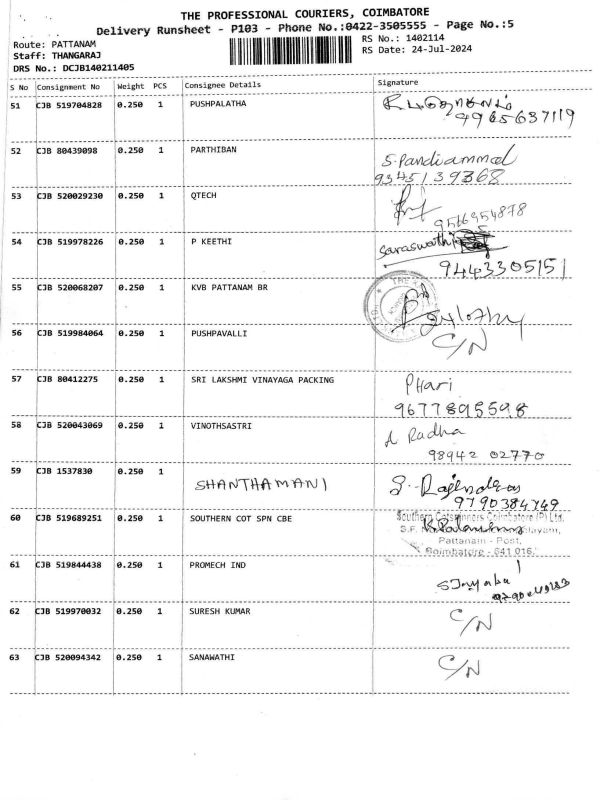 THE PROFESSIONAL COURIERS, COIMBATORE
Delivery Runsheet - P103 - Phone No.:0422-3505555 - Page No.:5
Route: PATTANAM
RS No.: 1402114
Staff: THANGARAJ
RS Date: 24-Jul-2024
DRS No.: DCJB140211405
S No Consignment No Weight PCS Consignee Details Signature
51 CJB 519704828 0.250 1 PUSHPALATHA
9965637119
52 CJB 80439098 0.250 1 PARTHIBAN S. Pandiammal
9345139368
53 CJB 520029230 0.250 1 QTECH
9566954878
54 CJB 519978226 0.250 1 P KEETHI Saraswathi
9443305151
55 CJB 520068207 0.250 1 KVB PATTANAM BR
56 CJB 519984064 0.250 1 PUSHPAVALLI C/N
57 CJB 80412275 0.250 1 SRI LAKSHMI VINAYAGA PACKING PHari
9677895598
58 CJB 520043069 0.250 1 VINOTHSASTRI A Radha
98942 02770
59 CJB 1537830 0.250 1 SHANTHAMANI
9790384749
60 CJB 519689251 0.250 1 SOUTHERN COT SPN CBE Southern Cotspinners Coimbatore (P) Ltd.
S.F.
Pattanam - Post,
Coimbatore - 641 016.
61 CJB 519844438 0.250 1 PROMECH IND
62 CJB 519970032 0.250 1 SURESH KUMAR C/N
63 CJB 520094342 0.250 1 SANAWATHI C/N